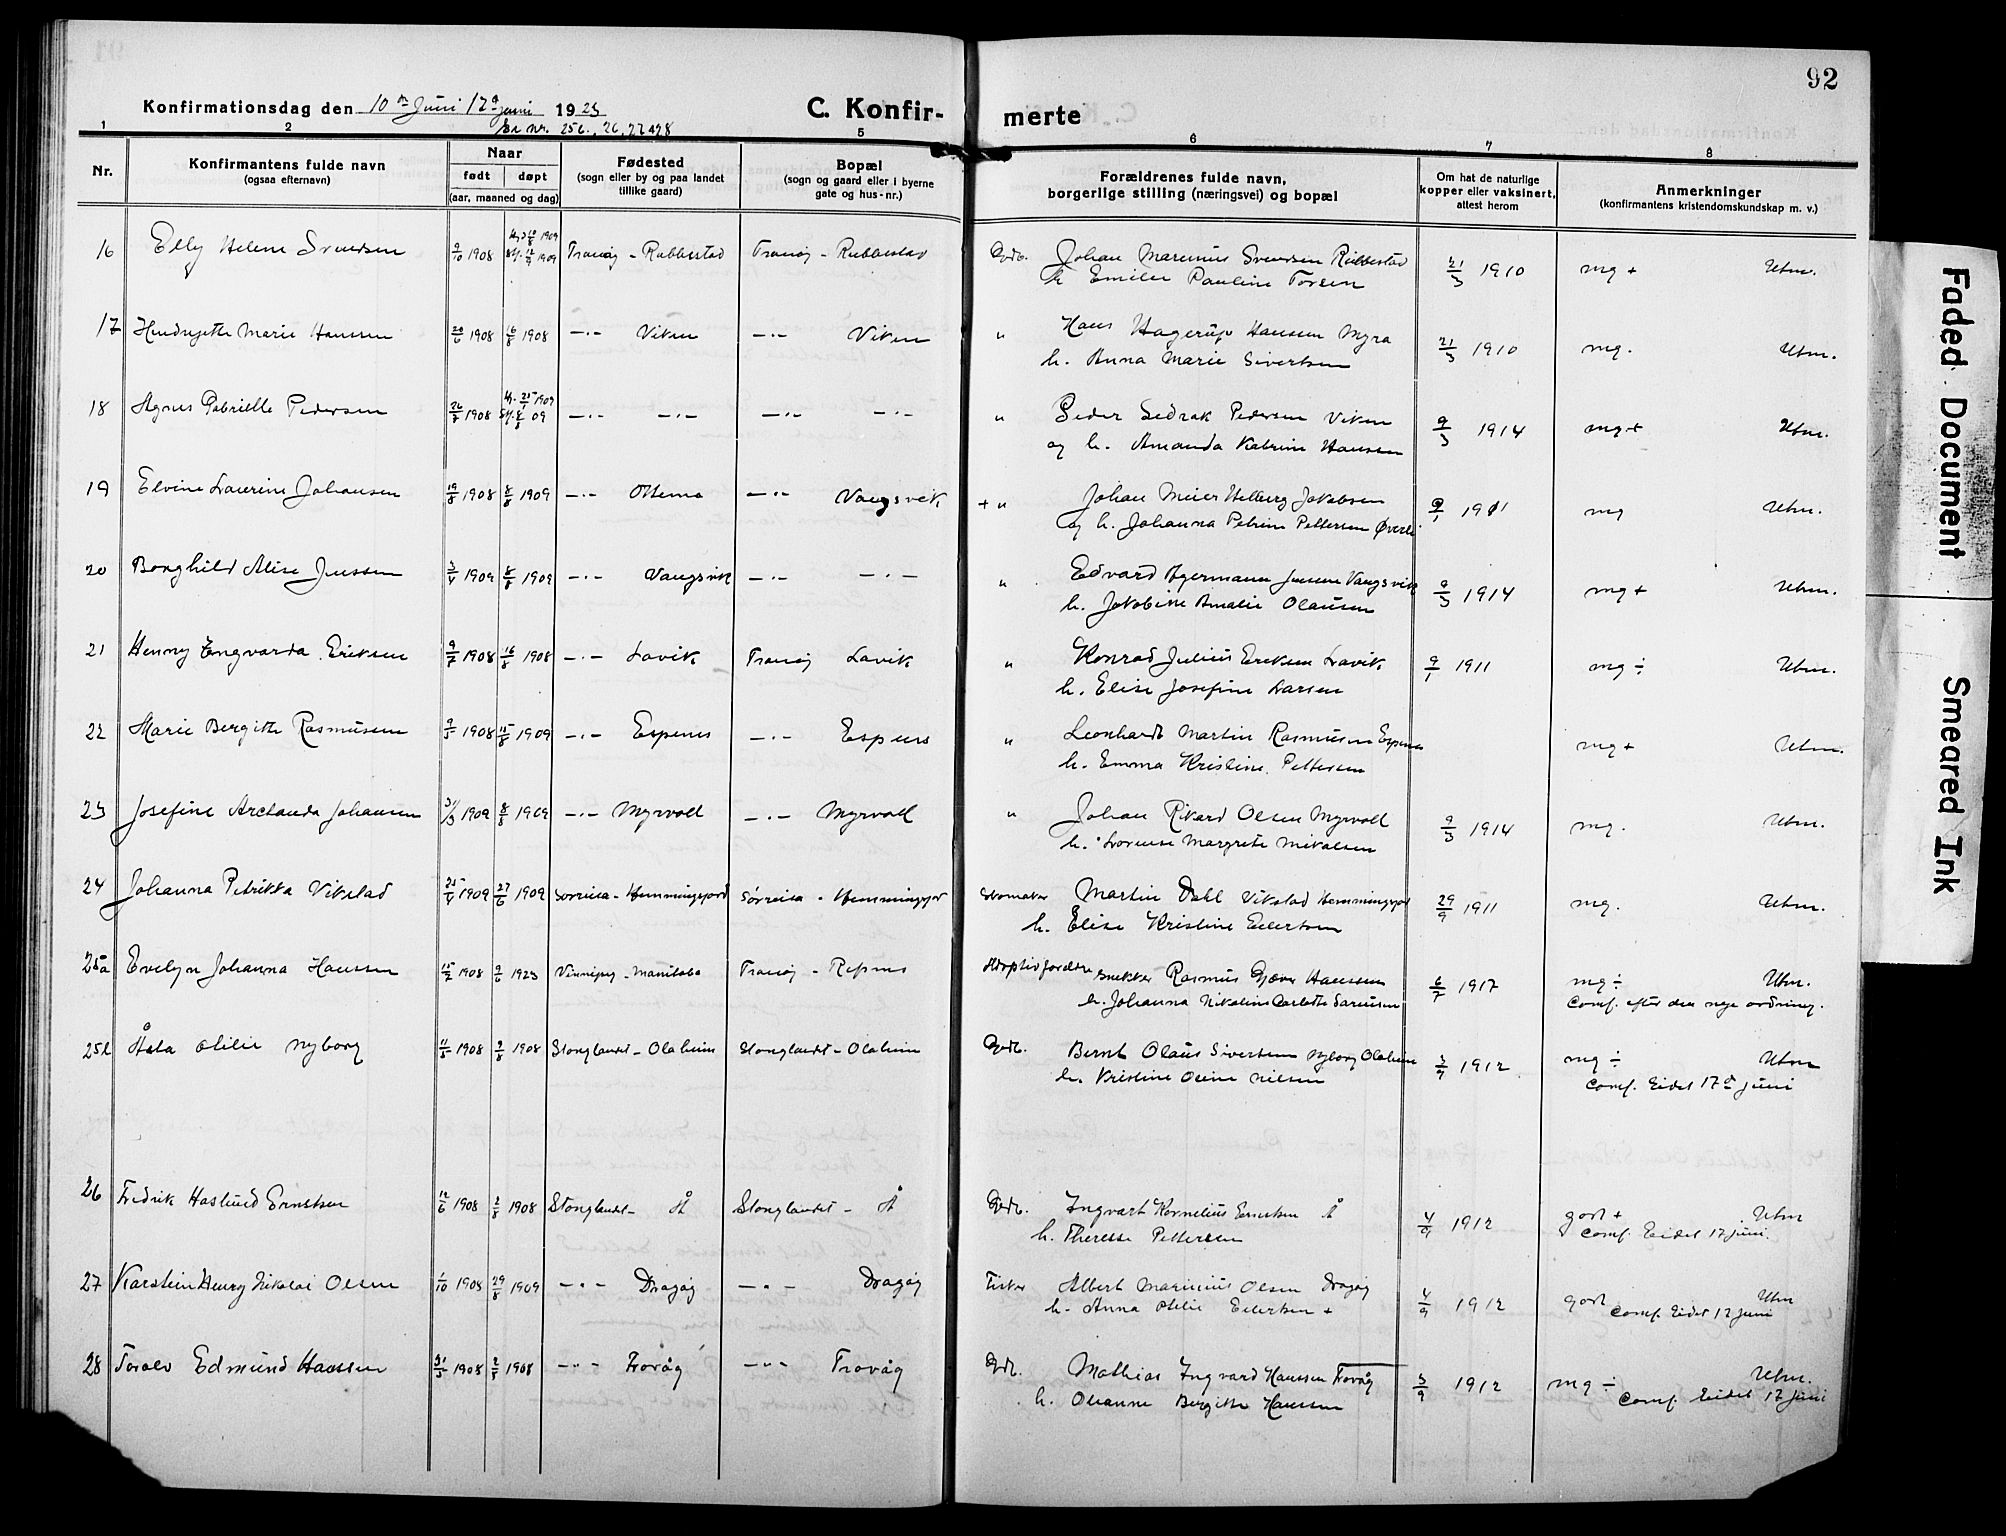 92
Konfirmationsdag den 10de Juni 17de juni 1923
C. Konfirmerte
for nr. 25b., 26, 27 & 28
1 2 5 6 7 8
Nr.
Konfirmantens fulde navn
(ogsaa efternavn)
Naar
født døpt
(aar, maaned og dag)
Fødested
(sogn eller by og paa landet
tillike gaard)
Bopæl
(sogn og gaard eller i byerne
gate og hus-nr.)
Forældrenes fulde navn,
borgerlige stilling (næringsvei) og bopæl
Om hat de naturlige
kopper eller vaksinert,
attest herom
Anmerkninger
(konfirmantens kristendomskundskap m. v.)
16 Elly Helene Svendsen 9/10 1908 Tranøy - Rubbestad Tranøy - Rubbestad Gdb. Johan Marenius Svendsen Rubbestad 21/3 1910 mg + Utm.
h. Emilie Pauline Torsen
17 Hendrijette Marie Hanssen 20/6 1908 16/8 1908 -"- Viken -"- Viken " Hans Hagerup Hansen Myra 21/3 1910 mg. Utm.
h. Anna Marie Sivertsen
18 Agnes Gabrielle Pedersen 26/7 1908 -"- -"- -"- -"- " Peder Sedrak Pedersen Viken 9/3 1914 mg + Utm.
og h. Amanda Katrine Hansen
19 Elvine Laurine Johansen 19/8 1908 8/8 1909 -"- Ottema -"- Vangsvik + " Johan Meier Helberg Jakobsen 9/1 1911 mg Utm.
og h. Johanna Petrine Pettersen Øverli
20 Borghild Alise Jenssen 3/4 1909 8/8 1909 -"- Vangsvik -"- -"- " Edvard Agermann Jensen Vangsvik 9/3 1914 mg + Utm.
h. Jakobine Amalie Olausen
21 Henny Engvarda Eriksen 9/7 1908 16/8 1908 -"- Lavik Tranøy Lavik " Konrad Julius Eriksen Lavik 9/1 1911 mg ÷ Utm.
h. Elise Josefine Larsen
22 Marie Bergitte Rasmussen 9/5 1908 15/8 1909 -"- Espenes -"- Espenes " Leonhardt Martin Rasmussen Espenes mg + Utm.
h. Emma Kristine Pettersen
23 Josefine Arctanda Johansen 31/3 1909 8/8 1909 -"- Myrvoll -"- Myrvoll " Johan Rikard Olsen Myrvoll 9/3 1914 mg. Utm.
h. Lovense Margrete Mikalsen
24 Johanna Petrikka Vikstad 25/4 1909 27/6 1909 Sørreisa - Hemmingsfjord Sørreisa - Hemmingsfjor Skomaker Martin Dahl Vikstad Hemmingsfjord 29/9 1911 mg. Utm.
h. Elise Kristine Eilertsen
25a Evelyn Johanna Hanssen 15/2 1908 9/6 1923 Vinnipeg - Manitoba Tranøy - Refsnes Adoptivforeldre snekker Rasmus Gjæver Hanssen 6/7 1917 mg ÷ Utm.
h. Johanna Nikoline Carlotte Sørensen Comf. efter den nye ordning.
25b Åsta Otilie Nyborg 11/5 1908 2/8 1908 Stonglandet - Olaheim Stonglandet - Olaheim Gdb. Bernt Olaus Sivertsen Nyborg Olaheim 3/9 1912 mg ÷ Utm
h. Kristine Oline Nilsen Comf. Eidet 17de juni
26 Fredrik Haslund Ernstsen 12/6 1908 2/8 1908 Stonglandet - Å Stonglandet - Å Gdb. Ingvart Kornelius Ernstsen Å 4/9 1912 godt + Utm
h. Therese Pettersen Comf. Eidet 17 juni.
27 Karstein Henry Nikolai Olsen 1/10 1908 29/8 1909 -"- Dragøy -"- Dragøy Fisker Albert Marinius Olsen Dragøy 4/9 1912 godt Utm
h. Anna Otelie Eilertsen + Comf. Eidet 17 juni
28 Toralv Edmund Hanssen 31/5 1908 2/8 1908 -"- Trovåg -"- Trovåg Gdb. Mathias Ingvard Hanssen Trovåg 3/9 1912 mg ÷ Utm.
h. Oleanne Bergitte Hanssen Comf. Eidet 17 juni
Faded Document Smeared Ink